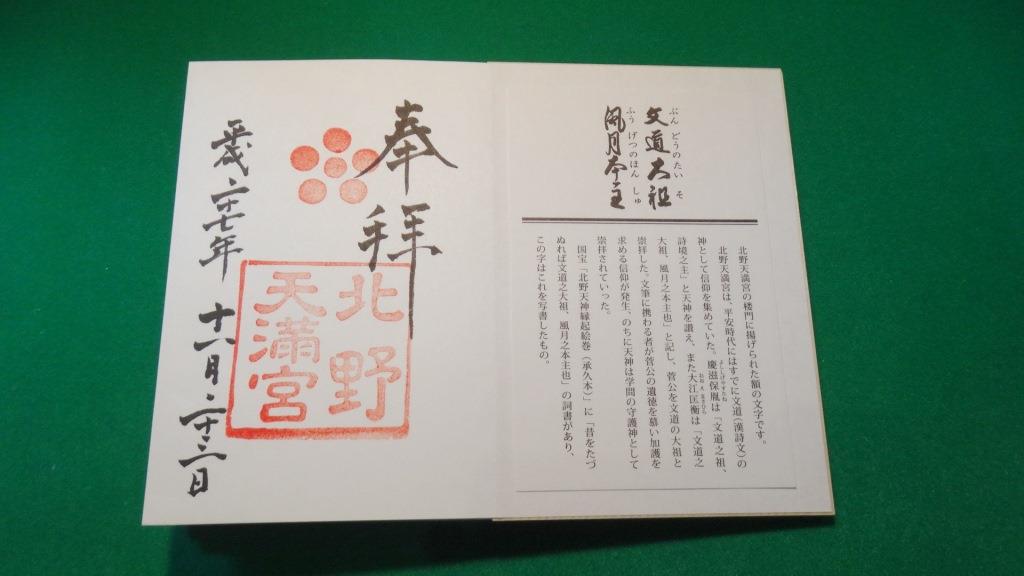 文道大祖
ぶんどうのたいそ
風月本主
ふうげつのほんしゅ
北野天満宮の楼門に揚げられた額の文字です。
北野天満宮は、平安時代にはすでに文道(漢詩文)の
神として信仰を集めていた。慶滋保胤は「文道之祖、
よししげやすたね
詩境之主」と天神を讃え、また大江匡衡は「文道之
おおえまさひら
大祖、風月之本主也」と記し、菅公を文道の大祖と
崇拝した。文筆に携わる者が菅公の遺徳を慕い加護を
求める信仰が発生、のちに天神は学問の守護神として
崇拝されていった。
国宝「北野天神縁起絵巻(承久本)」に「昔をたづ
ぬれば文道之大祖、風月之本主也」の詞書があり、
この字はこれを写書したもの。
奉拝
北野
天満宮
平成二十七年 十一月二十三日